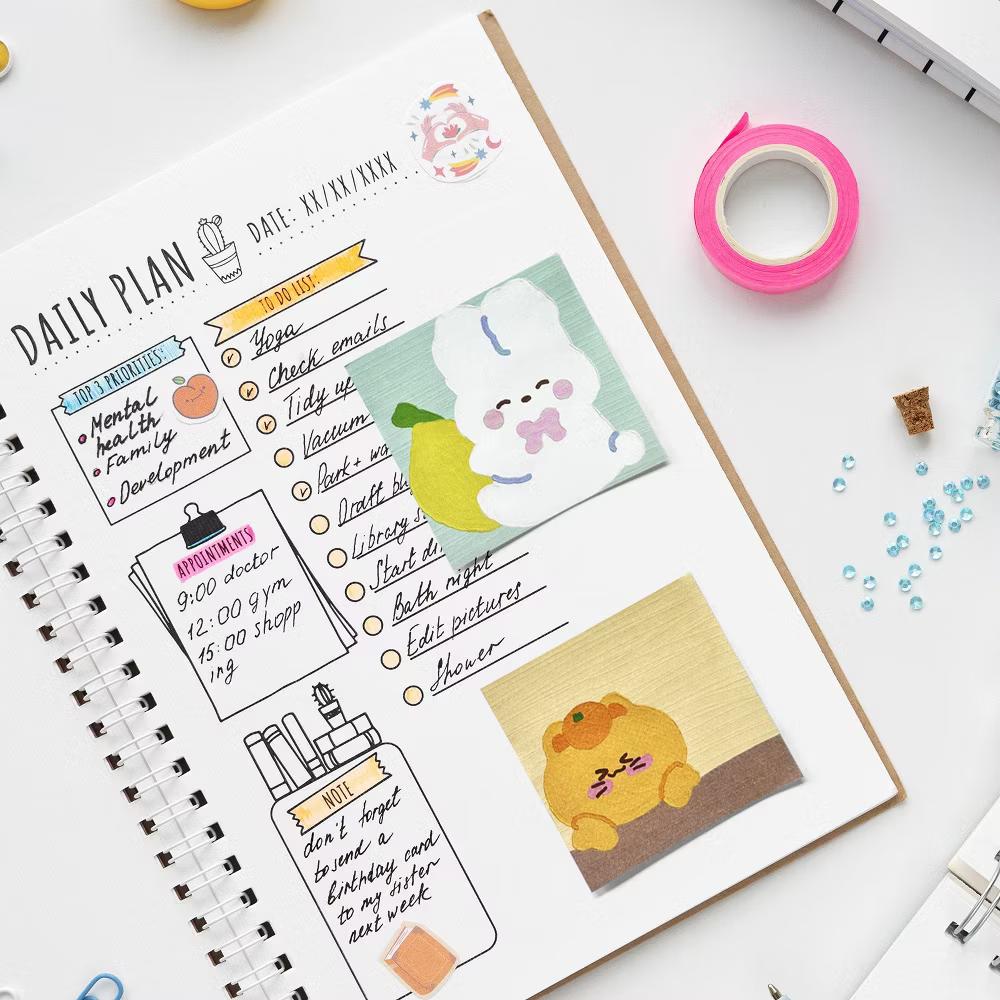 DAILY PLAN
DATE: XX/XX/XXXX
TOP 3 PRIORITIES:
Mental
health
Family
Development
TO DO LIST:
Yoga
Check emails
Tidy up
Vaccum
Park +
Draft
Library
Start
Bath night
Edit pictures
Shower
APPOINTMENTS
9:00 doctor
12:00 gym
15:00 shopp
ing
NOTE
don't forget
to send a
birthday card
to my sister
next week